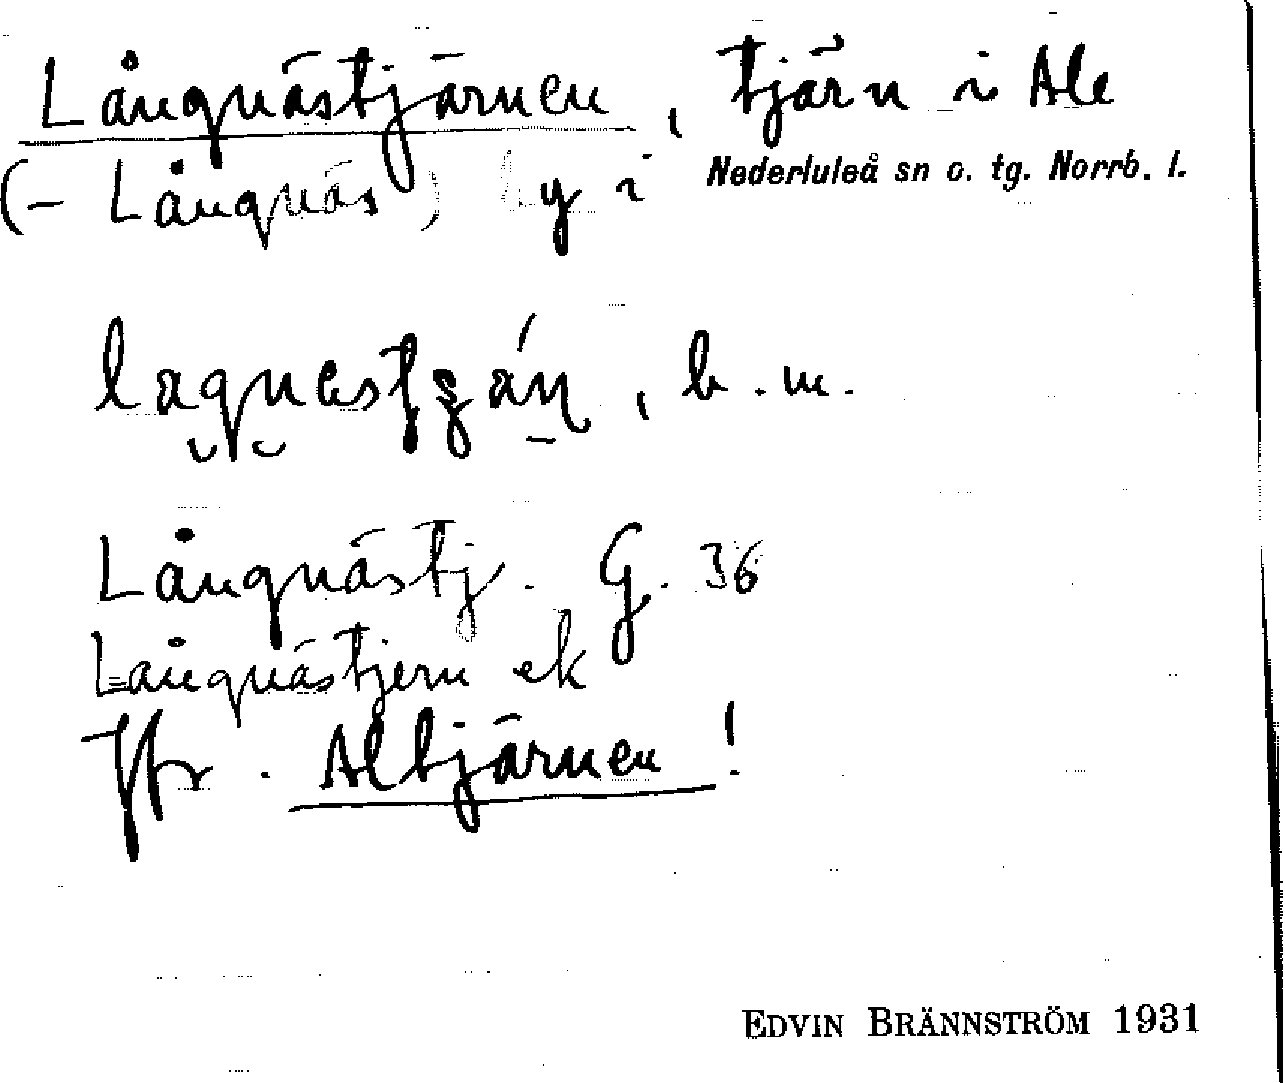 Långnästjärnen, tjärn i Ale
(- Långnäs) by i Nederluleå sn o. tg. Norrb. l.
b. m.
Långnästj. G. 36
Långnästjern ek
Jfr. Altjärnen!
EDVIN BRÄNNSTRÖM 1931